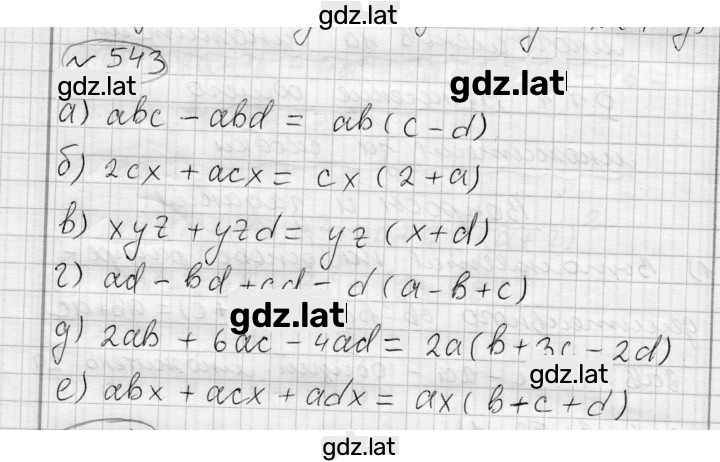 gdz.lat
№ 543
gdz.lat
gdz.lat
а) abc - abd = ab(c-d)
б) 2cx + acx = cx(2+a)
в) xyz + yzd = yz(x+d)
г) ad - bd + cd = d(a-b+c)
gdz.lat
д) 2ab + 6ac - 4ad = 2a(b+3c-2d)
gdz.lat
е) abx + acx + adx = ax(b+c+d)
gdz.lat